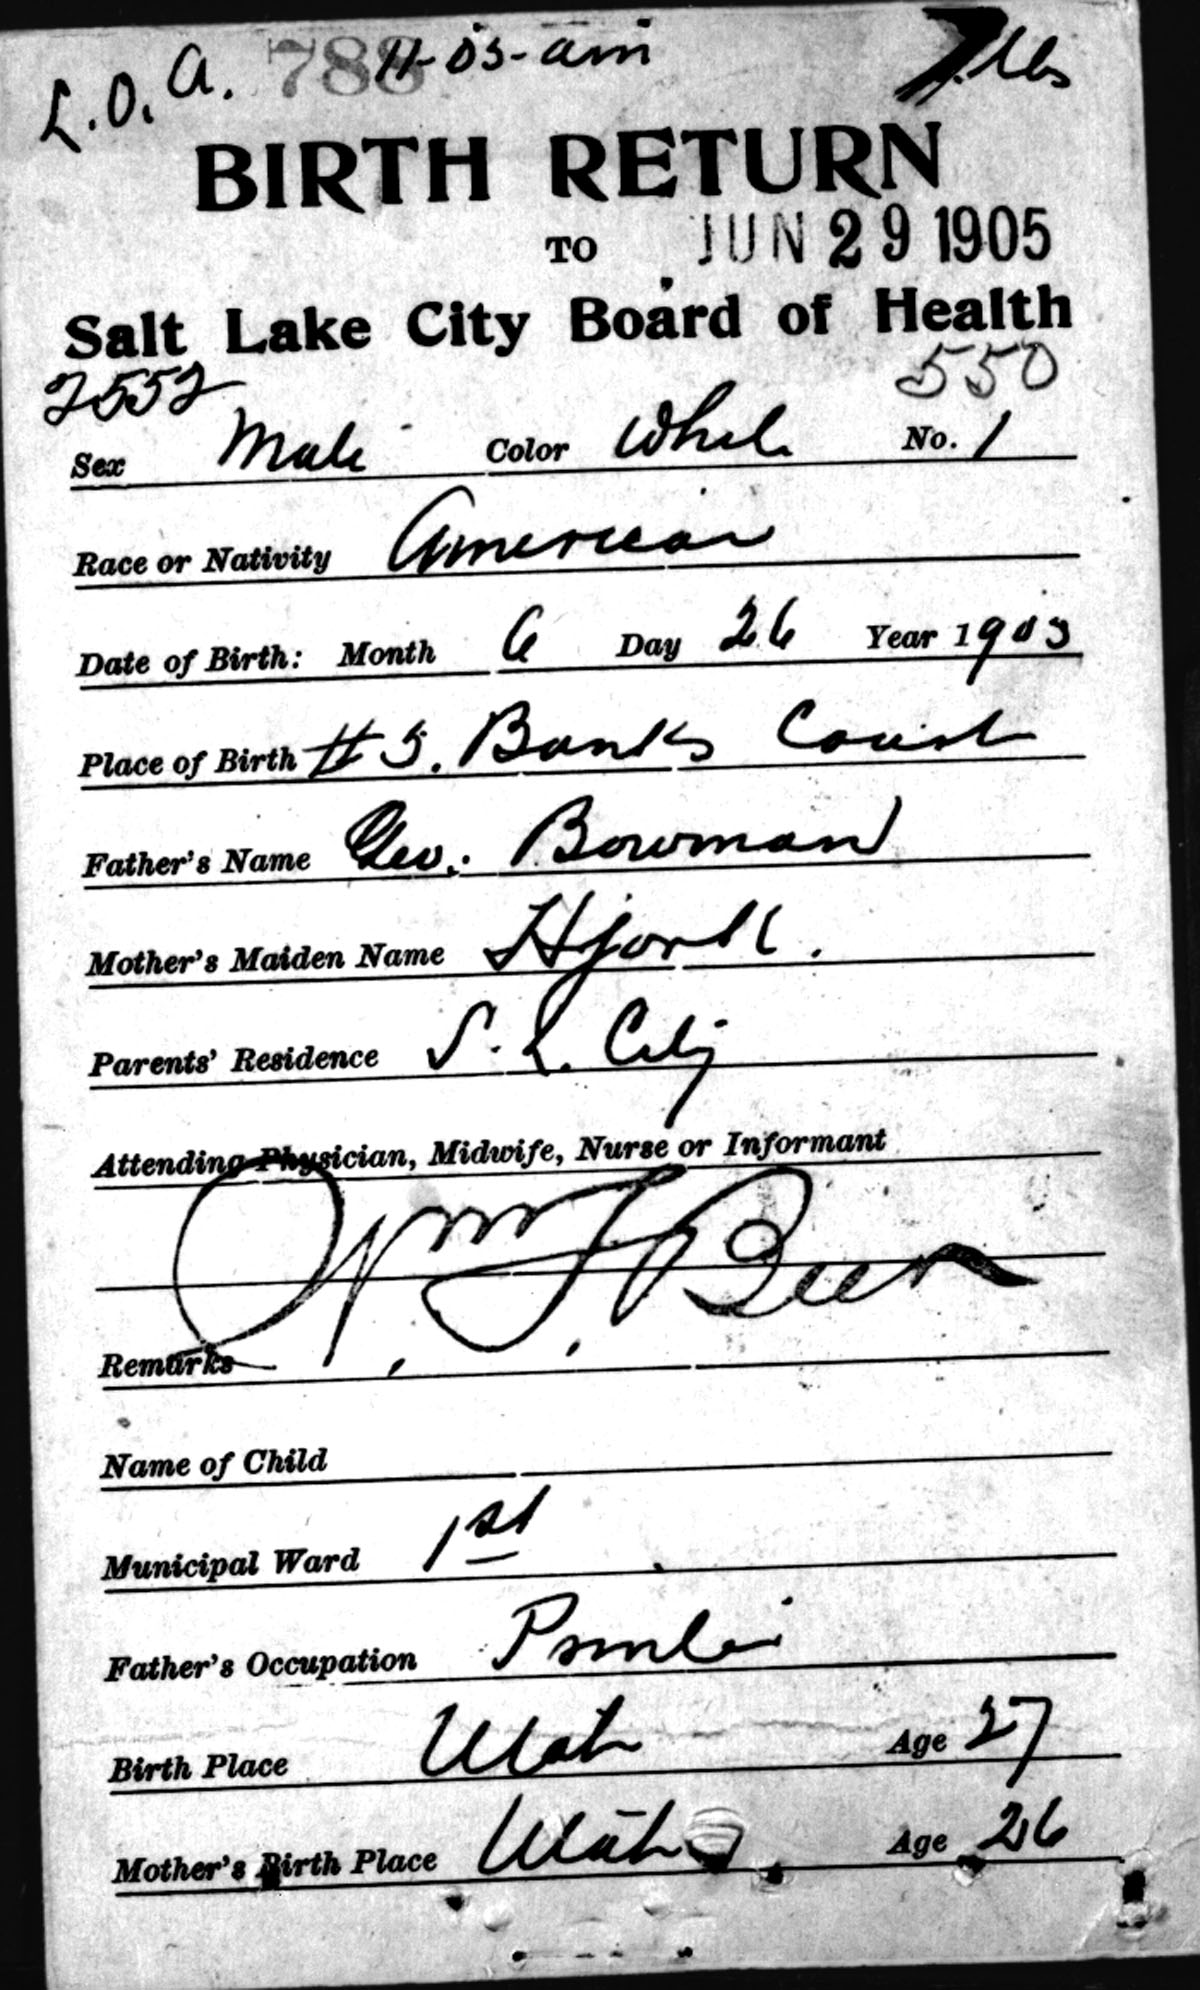 L.O.A. 788 11-05-am 7 lbs
BIRTH RETURN
TO JUN 29 1905
Salt Lake City Board of Health
2552 550
Sex Male Color White No. 1
Race or Nativity American
Date of Birth: Month 6 Day 26 Year 1905
Place of Birth #5. Banks Court
Father's Name Geo. Bowman
Mother's Maiden Name Hjorth.
Parents' Residence S. L. City
Attending Physician, Midwife, Nurse or Informant
Wm F Beer
Remarks
Name of Child
Municipal Ward 1st
Father's Occupation
Birth Place Utah Age 27
Mother's Birth Place Utah Age 26